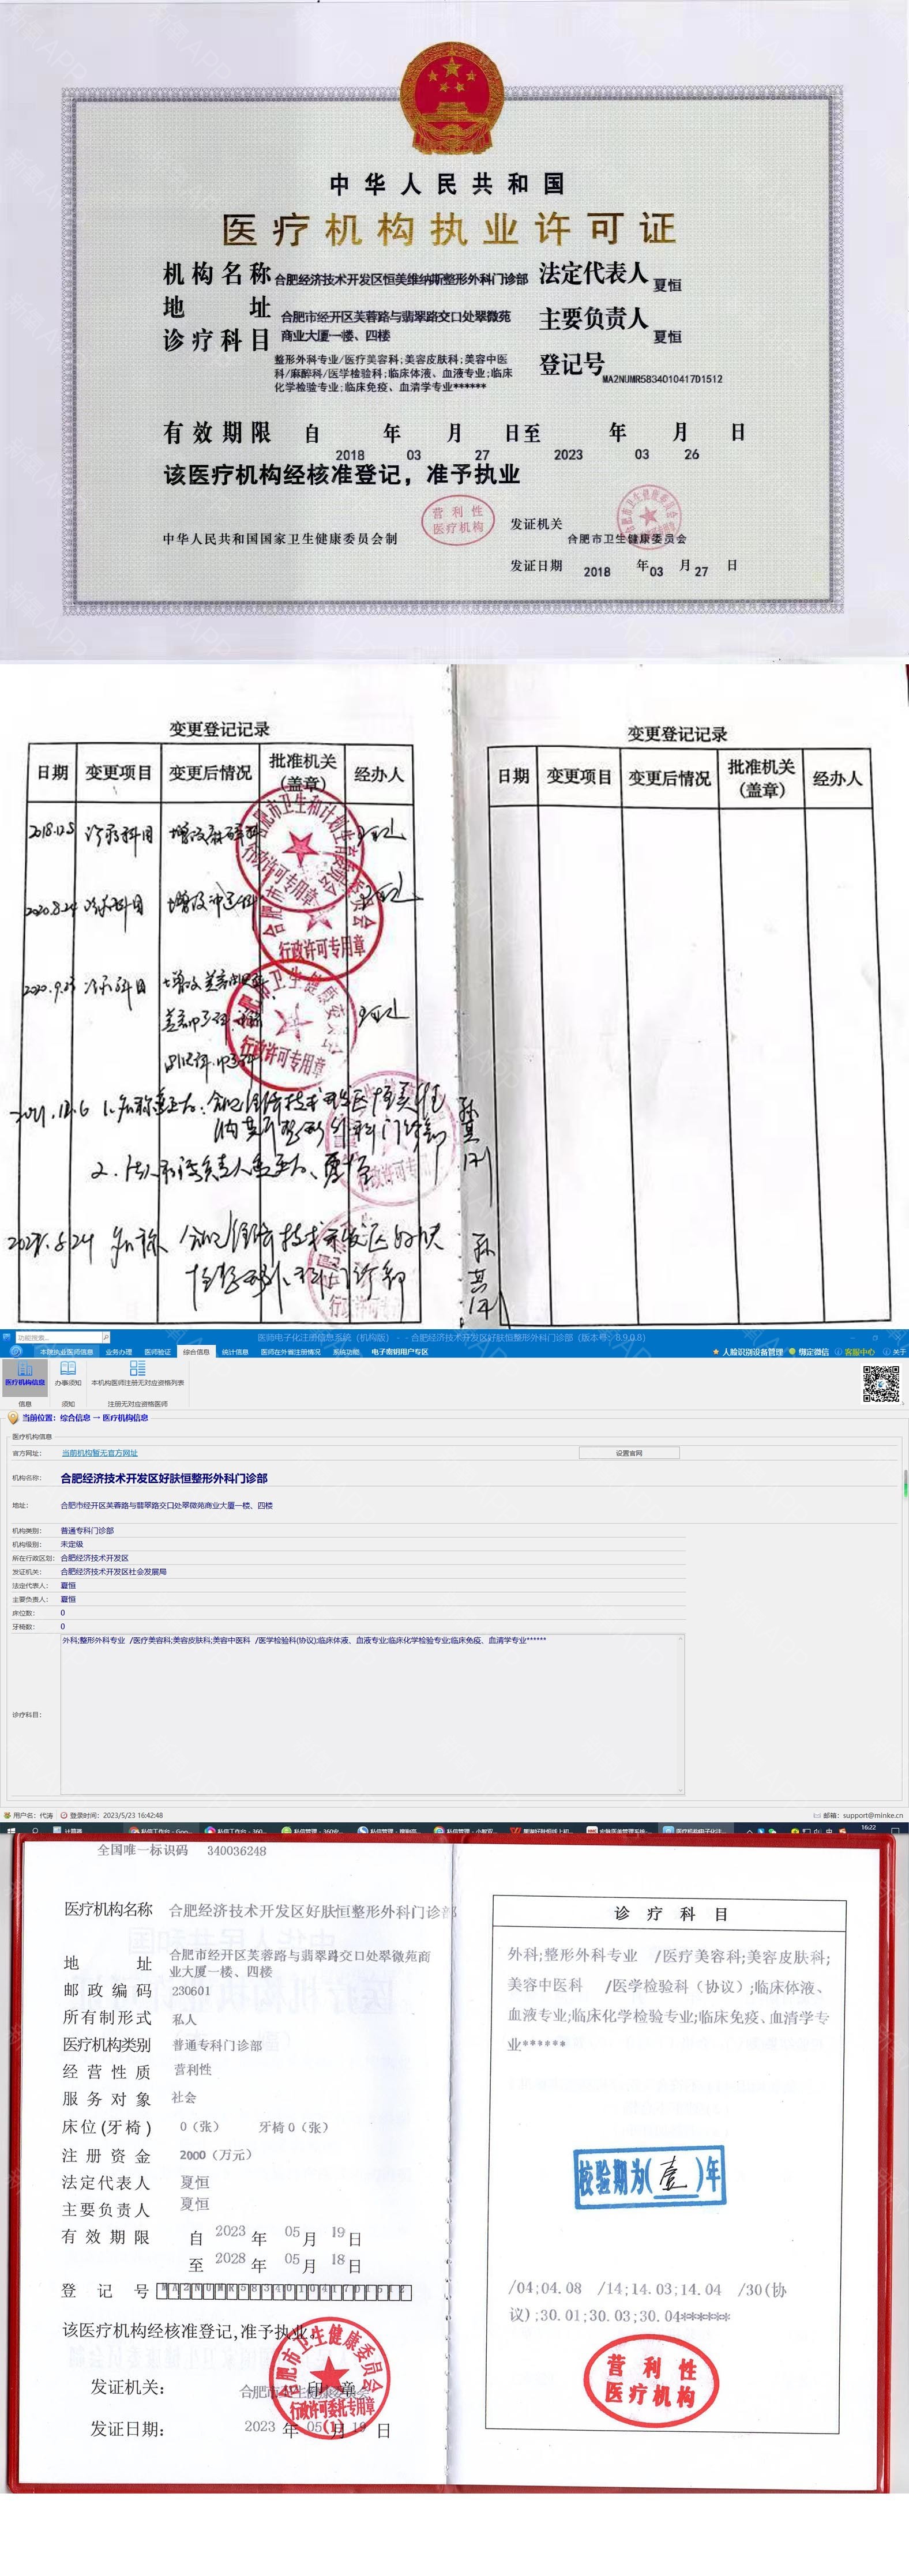 中华人民共和国
医疗机构执业许可证
机构名称 合肥经济技术开发区恒美维纳斯整形外科门诊部 法定代表人 夏恒
地址 合肥市经开区芙蓉路与翡翠路交口处翠微苑
商业大厦一楼、四楼 主要负责人 夏恒
诊疗科目 整形外科专业/医疗美容科;美容皮肤科;美容中医
科/麻醉科/医学检验科;临床体液、血液专业;临床
化学检验专业;临床免疫、血清学专业******
登记号 MA2NUMR5834010417D1512
有效期限 自 2018 年 03 月 27 日至 2023 年 03 月 26 日
该医疗机构经核准登记，准予执业
营利性
医疗机构
中华人民共和国国家卫生健康委员会制
发证机关 合肥市卫生健康委员会
发证日期 2018 年 03 月 27 日
变更登记记录
日期 变更项目 变更后情况 批准机关（盖章） 经办人
2018.12.5 诊疗科目 增设麻醉科
2020.8.24 诊疗科目
2020.9.23 诊疗科目 增设美容
行政许可专用章
行政许可专用章
行政许可专用章
2021.12.6 1.名称变更为:合肥经济技术开发区恒美维
纳斯整形外科门诊部
2.法人 负责人变更为、夏恒
5.24 名称 合肥经济技术开发区好肤
恒整形外科门诊部
变更登记记录
日期 变更项目 变更后情况 批准机关（盖章） 经办人
功能搜索...
医师电子化注册信息系统（机构版） - - 合肥经济技术开发区好肤恒整形外科门诊部（版本号：8.9.0.8）
本院执业医师信息 业务办理 医师验证 综合信息 统计信息 医师在外省注册情况 系统功能 电子密钥用户专区
人脸识别设备管理 绑定微信 客服中心 关于
医疗机构信息 办事须知 本机构医师注册无对应资格列表
信息 须知 注册无对应资格医师
当前位置：综合信息 → 医疗机构信息
医疗机构信息
官方网址： 当前机构暂无官方网址 设置官网
机构名称： 合肥经济技术开发区好肤恒整形外科门诊部
地址： 合肥市经开区芙蓉路与翡翠路交口处翠微苑商业大厦一楼、四楼
机构类别： 普通专科门诊部
机构级别： 未定级
所在行政区划： 合肥经济技术开发区
发证机关： 合肥经济技术开发区社会发展局
法定代表人： 夏恒
主要负责人： 夏恒
床位数： 0
牙椅数： 0
诊疗科目： 外科;整形外科专业 /医疗美容科;美容皮肤科;美容中医科 /医学检验科(协议);临床体液、血液专业;临床化学检验专业;临床免疫、血清学专业******
用户名：代涛 登录时间：2023/5/23 16:42:48 邮箱：support@minke.cn
16:22
全国唯一标识码 340036248
医疗机构名称 合肥经济技术开发区好肤恒整形外科门诊部
地址 合肥市经开区芙蓉路与翡翠路交口处翠微苑商
业大厦一楼、四楼
邮政编码 230601
所有制形式 私人
医疗机构类别 普通专科门诊部
经营性质 营利性
服务对象 社会
床位(牙椅) 0（张） 牙椅0（张）
注册资金 2000（万元）
法定代表人 夏恒
主要负责人 夏恒
有效期限 自 2023 年 05 月 19 日
至 2028 年 05 月 18 日
登记号 MA2NUMR5834010417D1512
该医疗机构经核准登记,准予执业。
发证机关： 合肥市卫生健康委员会 印章
行政许可委托专用章
(1)
发证日期： 2023 年 05 月 19 日
诊疗科目
外科;整形外科专业 /医疗美容科;美容皮肤科;
美容中医科 /医学检验科（协议）;临床体液、
血液专业;临床化学检验专业;临床免疫、血清学专
业******
校验期为(壹)年
/04;04.08 /14;14.03;14.04 /30(协
议);30.01;30.03;30.04******
营利性
医疗机构